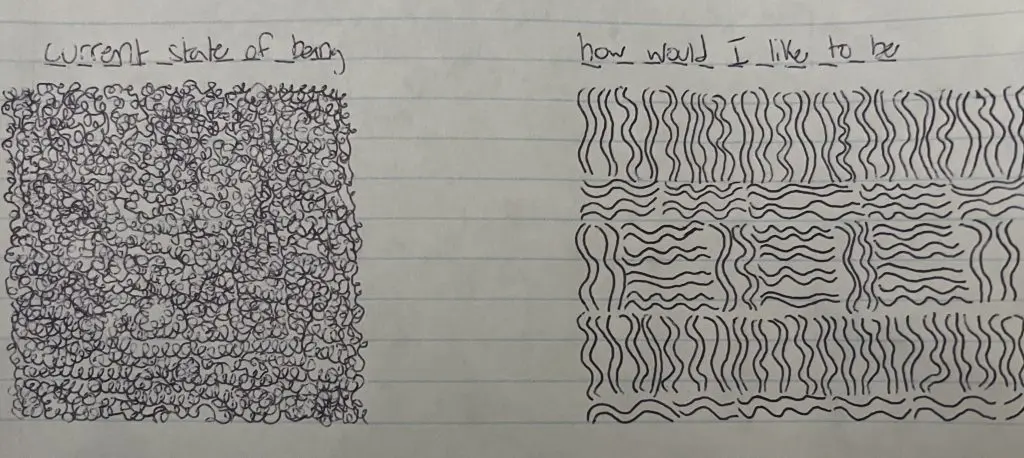 current state of being
how would I like to be